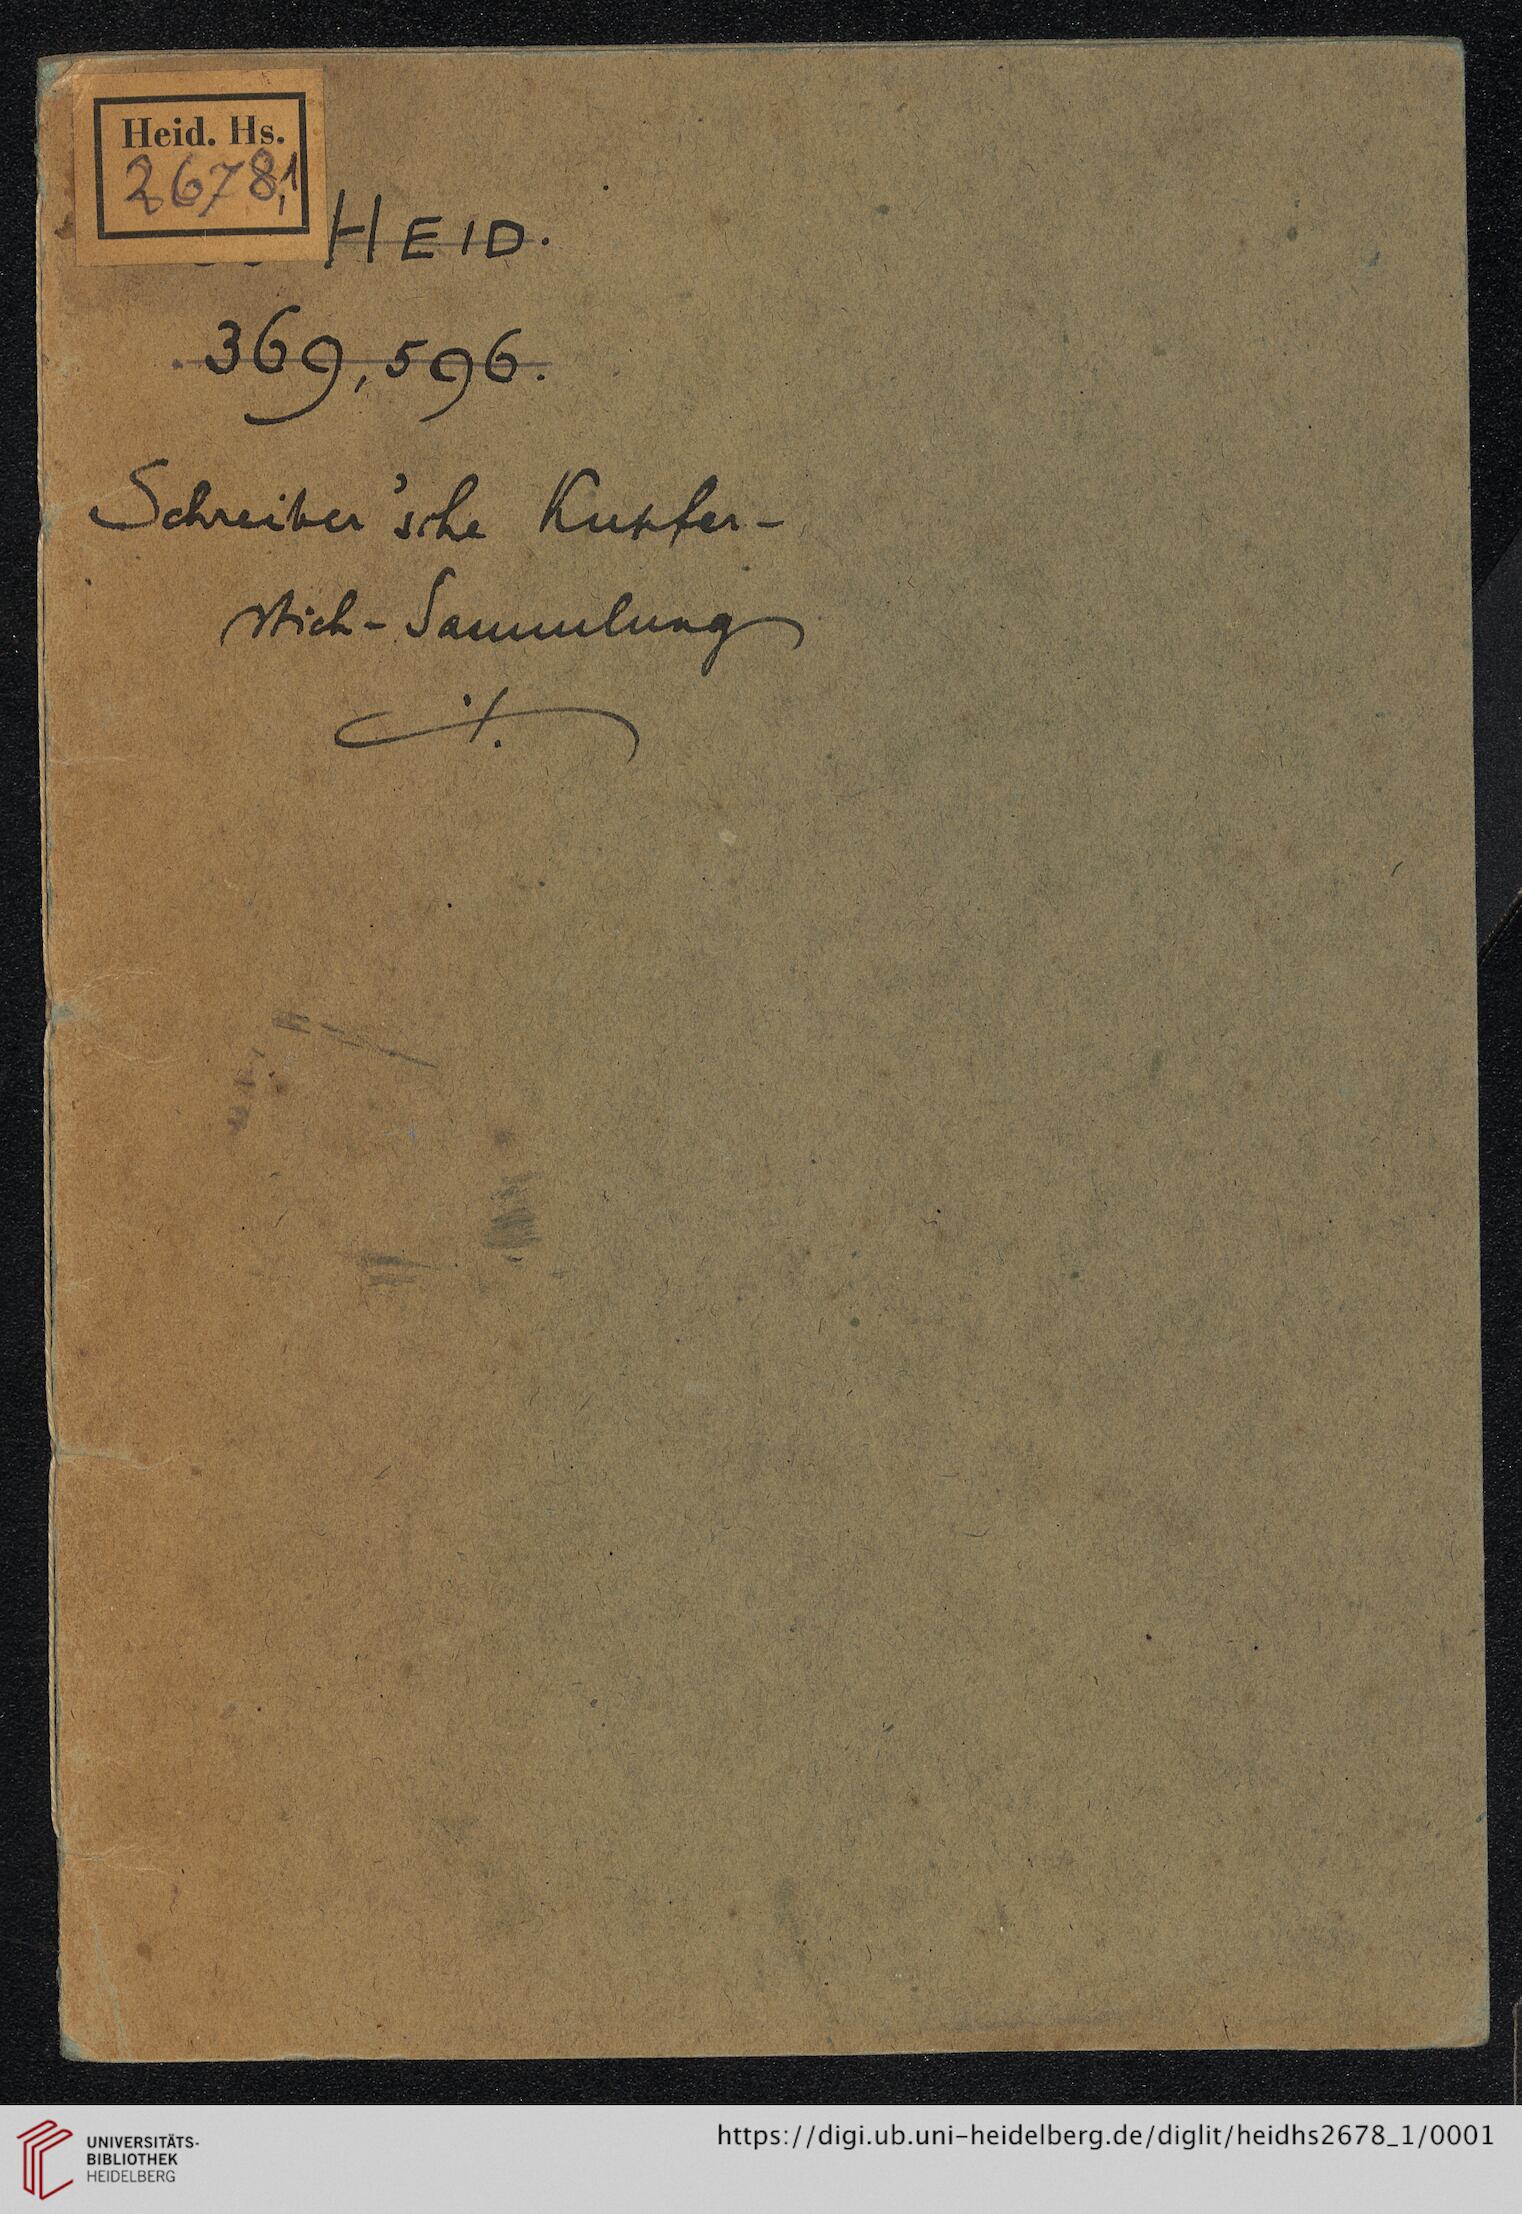 Heid. Hs.
2678,1
HEID.
369,596.
Schreiber'sche Kupfer-
stich-Sammlung
UNIVERSITÄTS-
BIBLIOTHEK
HEIDELBERG
https://digi.ub.uni-heidelberg.de/diglit/heidhs2678_1/0001